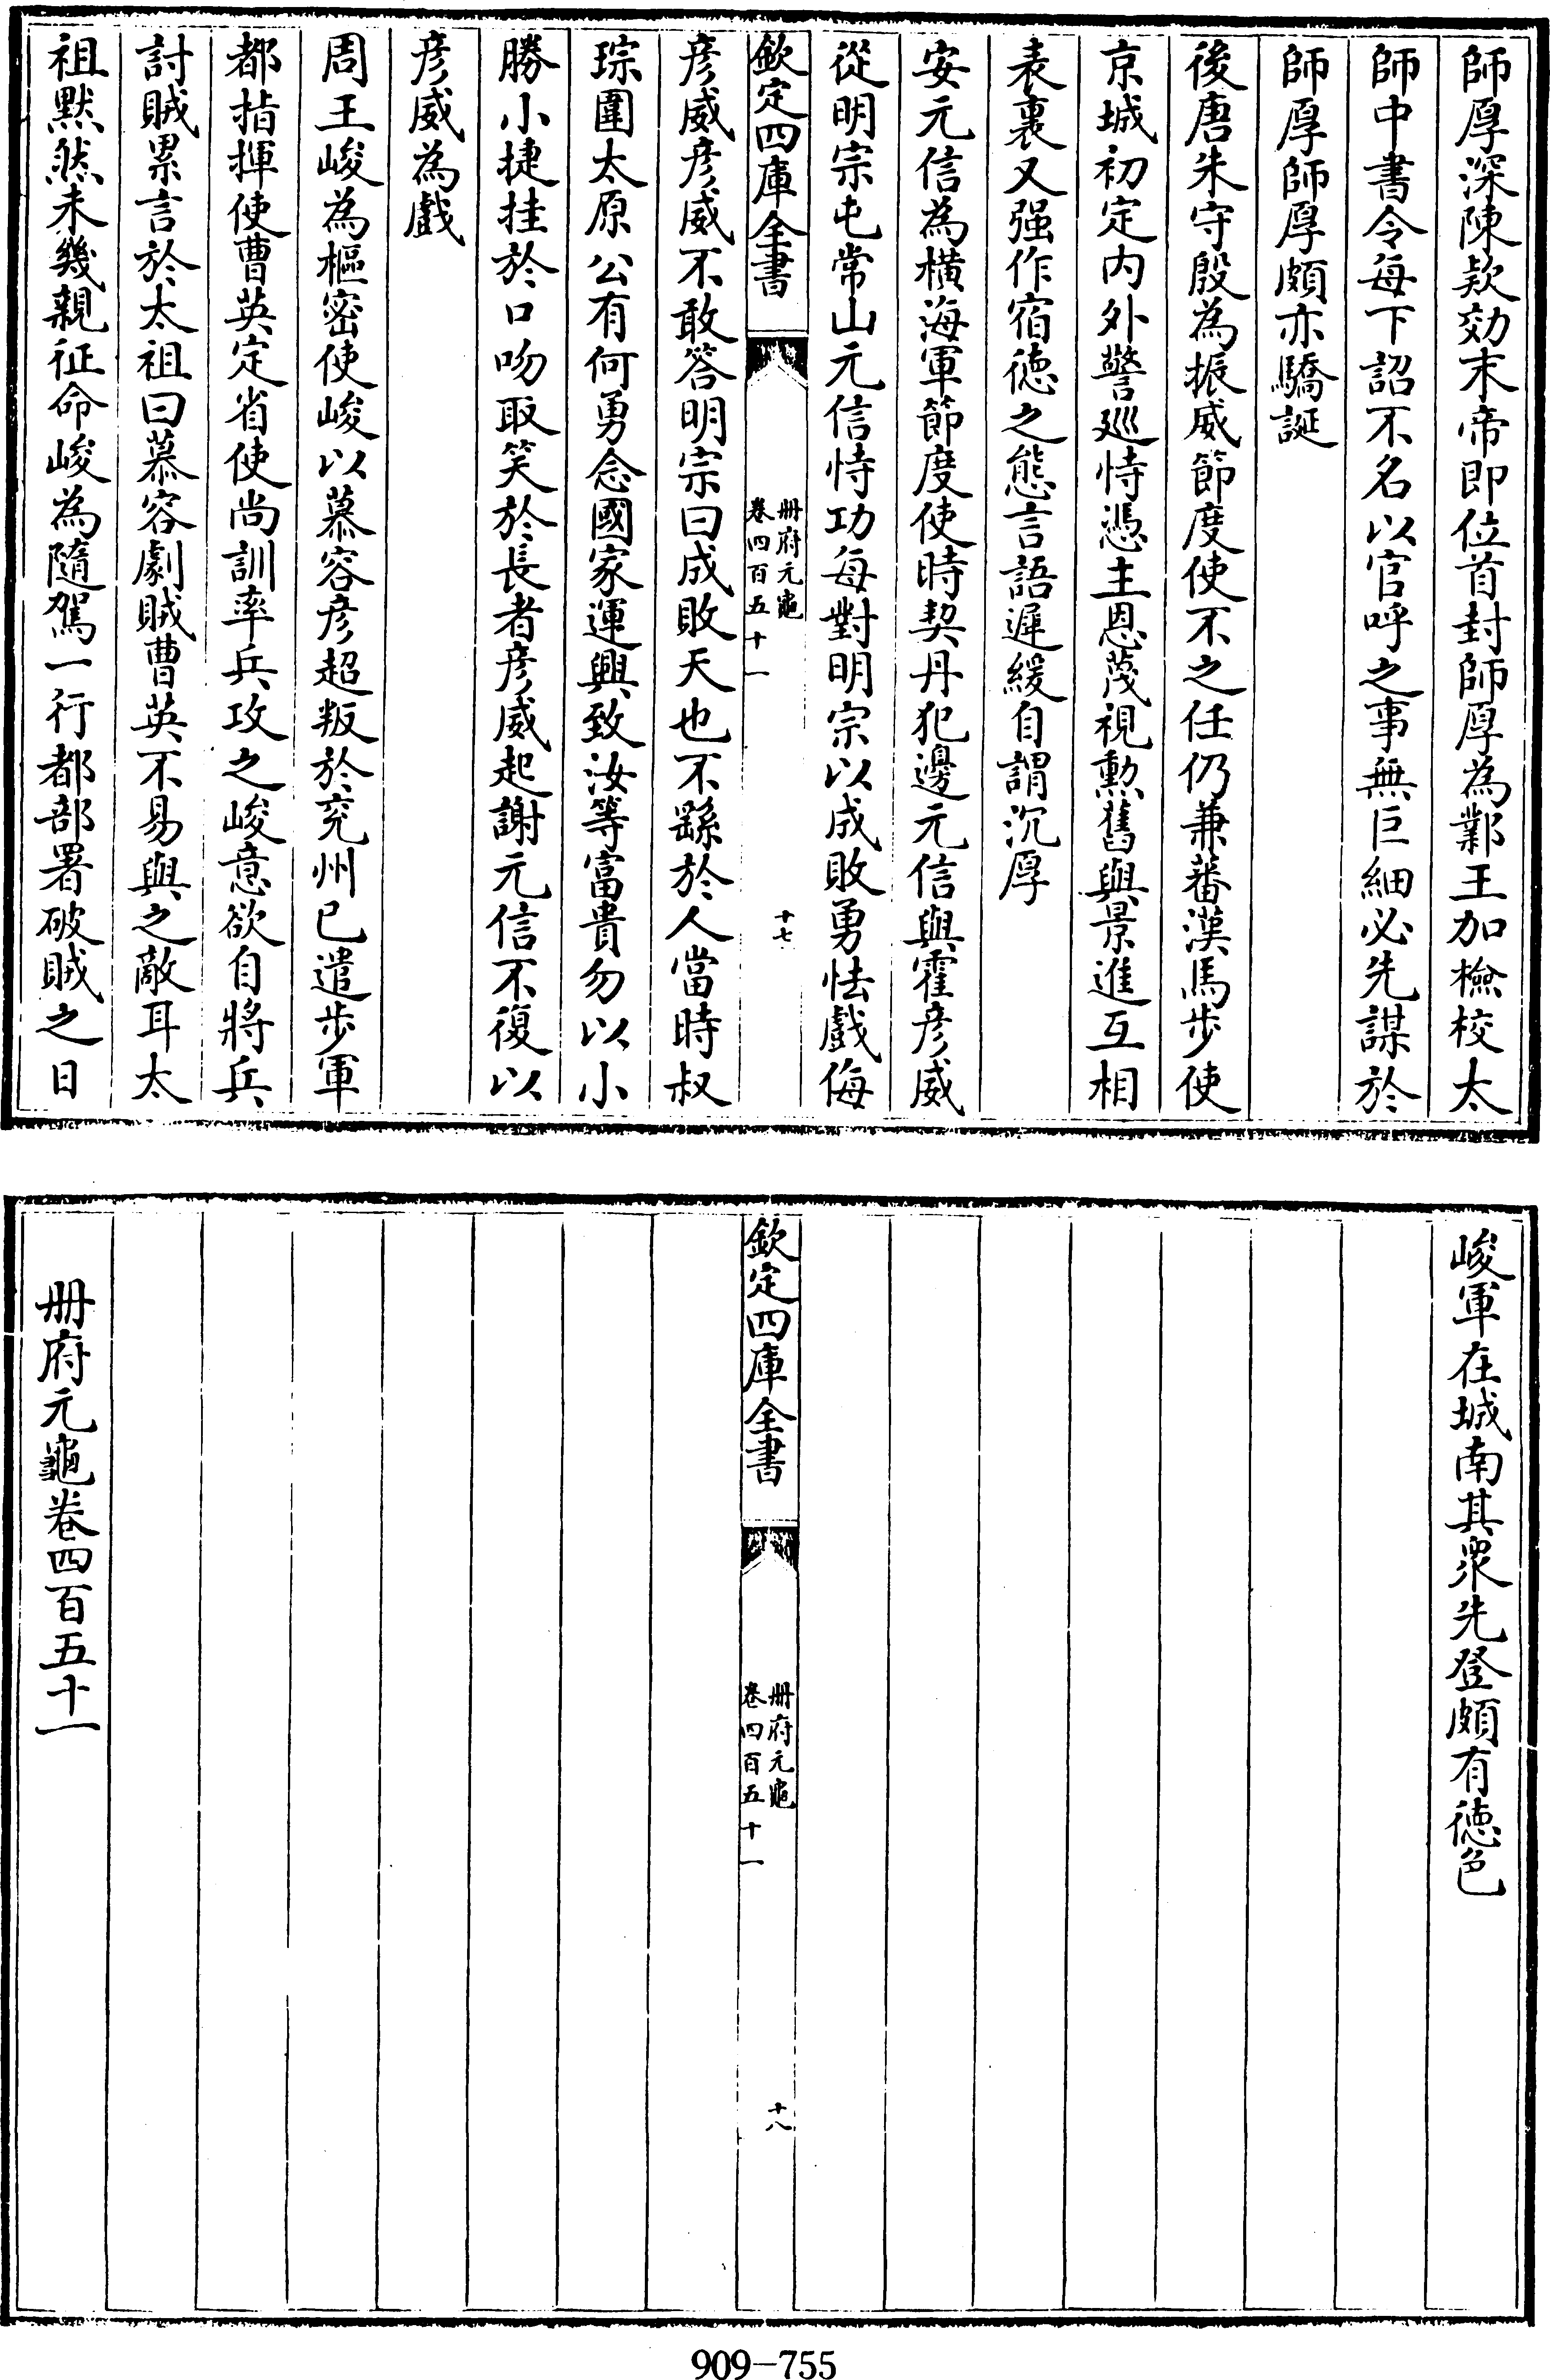 師厚深陳欵効末帝即位首封師厚為鄴王加檢校太
師中書令每下詔不名以官呼之事無巨細必先謀於
師厚師厚頗亦驕誕
後唐朱守殷為振威節度使不之任仍兼蕃漢馬步使
京城初定内外警巡恃憑主恩蔑視勲舊與景進互相
表裏又强作宿徳之態言語遲緩自謂沉厚
安元信為横海軍節度使時契丹犯邊元信與霍彦威
從明宗屯常山元信恃功每對明宗以成敗勇怯戲侮
欽定四庫全書
册府元龜
卷四百五十一
十七
彦威彦威不敢答明宗曰成敗天也不繇於人當時叔
琮圍太原公有何勇念國家運興致汝等富貴勿以小
勝小捷挂於口吻取笑於長者彦威起謝元信不復以
彦威為戲
周王峻為樞密使峻以慕容彦超叛於兖州已遣步軍
都指揮使曹英定省使尚訓率兵攻之峻意欲自將兵
討賊累言於太祖曰慕容劇賊曹英不易與之敵耳太
祖黙然未幾親征命峻為隨駕一行都部署破賊之日
峻軍在城南其衆先登頗有徳色
欽定四庫全書
册府元龜
卷四百五十一
十八
册府元龜卷四百五十一
909-755